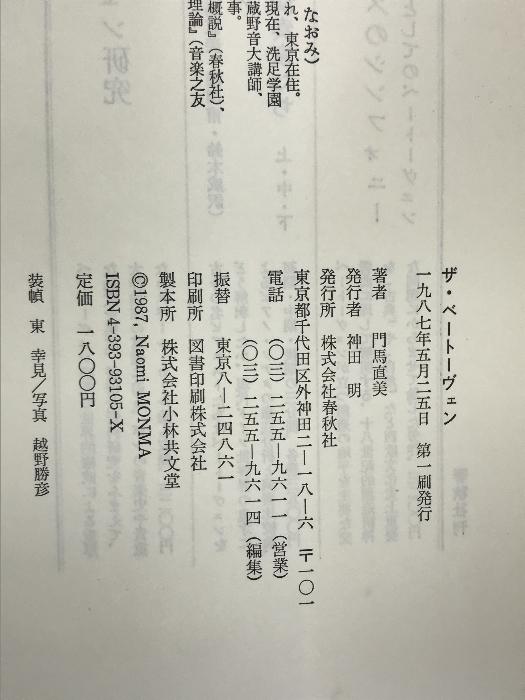 なおみ）
れ、東京在住。
現在、洗足学園
蔵野音大講師、
事。
概説』（春秋社）、
理論』（音楽之友
ザ・ベートーヴェン
一九八七年五月二五日　第一刷発行
著者　門馬直美
発行者　神田　明
発行所　株式会社春秋社
東京都千代田区外神田二—一八—六　〒一〇一
電話　（〇三）二五五—九六一一（営業）
（〇三）二五五—九六一四（編集）
振替　東京八—二四八六一
印刷所　図書印刷株式会社
製本所　株式会社小林共文堂
©1987, Naomi MONMA
ISBN 4-393-93105-X
定価　一八〇〇円
装幀　東　幸見／写真　越野勝彦